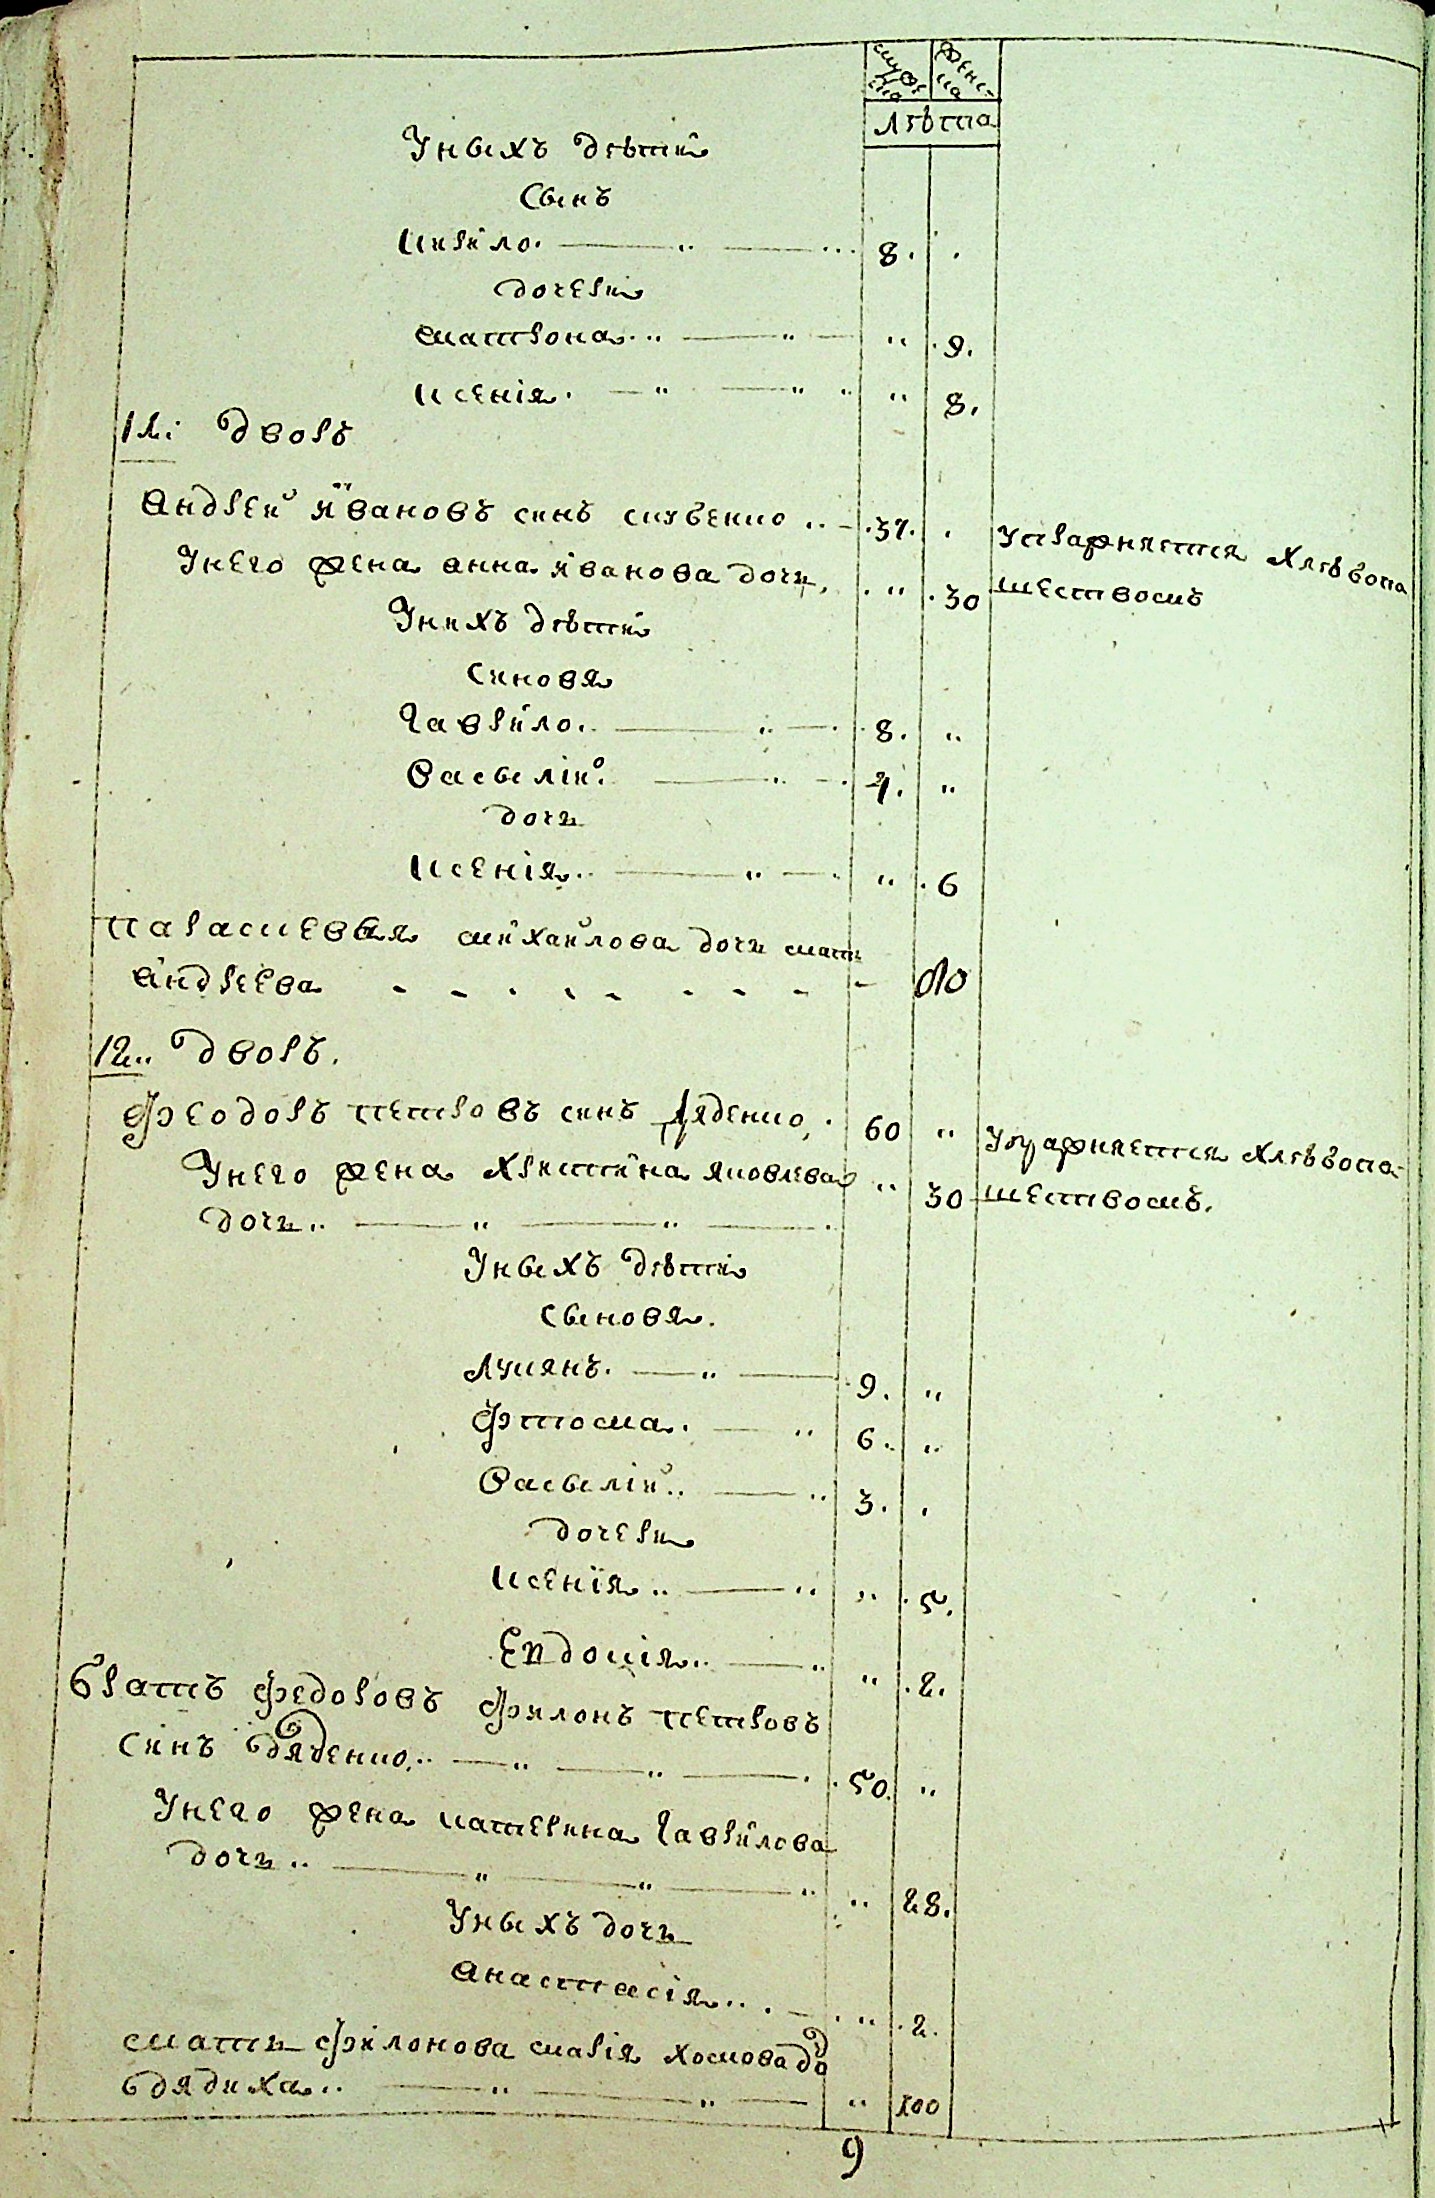 мужеска женска
Лѣта
Уныхъ дѣтѣй
Сынъ
Кирило 8.
дочери
матрона 9.
ксенія 8.
11: дворъ
андрей ивановъ синъ 37. упражняется хлѣбопа
Унего жена анна иванова дочь 30 шествомъ
Унихъ дѣтей
Синовя
гаврило 8.
василій 4.
дочь
ксенія 6
параскевия михайлова дочь мать
андреева 80
12 дворъ.
феодоръ петровъ синъ дяденко 60 упражняется хлѣбопа
Унего жена христина яковлева 30 шествомъ.
дочь
Уныхъ дѣтей
сыновя.
Лукянъ. 9.
фтома. 6.
василій 3.
дочери
ксенія 5.
Евдокія 2.
братъ федоровъ филонъ петровъ
синъ дяденко 50.
Унего жена катерина гаврилова
дочь 28.
Уныхъ дочь
анастасія 2.
мати филонова марія хомова до
дядиха 100
9